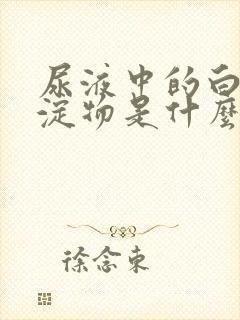 尿液中的白
淀物是什麼
徐念東